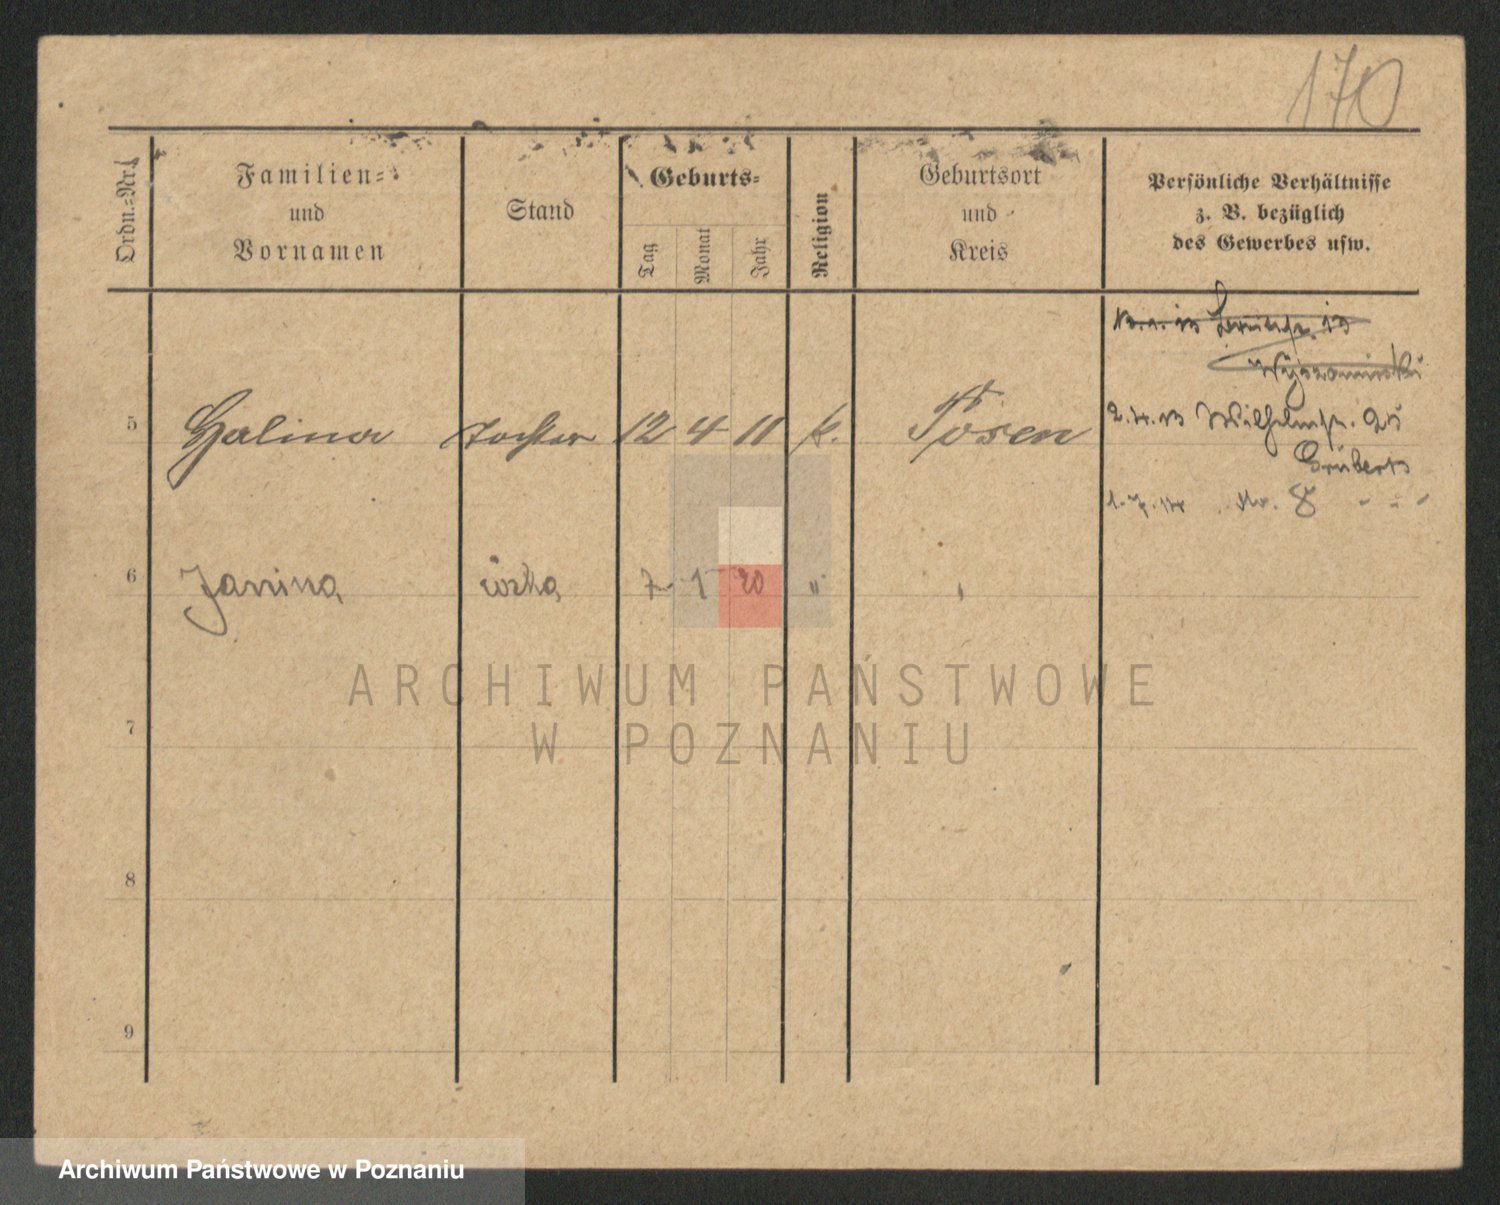 170
Ordn.-Nr.
Familien-
und
Vornamen
Stand
Geburts-
Tag
Monat
Jahr
Religion
Geburtsort
und
Kreis
Persönliche Verhältnisse
z. B. bezüglich
des Gewerbes usw.
13
5 Halina Tochter 12 4 11 k. Posen
2.4.13 Wilhelmstr. 25
Grubert
Nr. 8 " " "
6 Janina córka 7 1 20 " "
7
8
9
ARCHIWUM PAŃSTWOWE
W POZNANIU
Archiwum Państwowe w Poznaniu